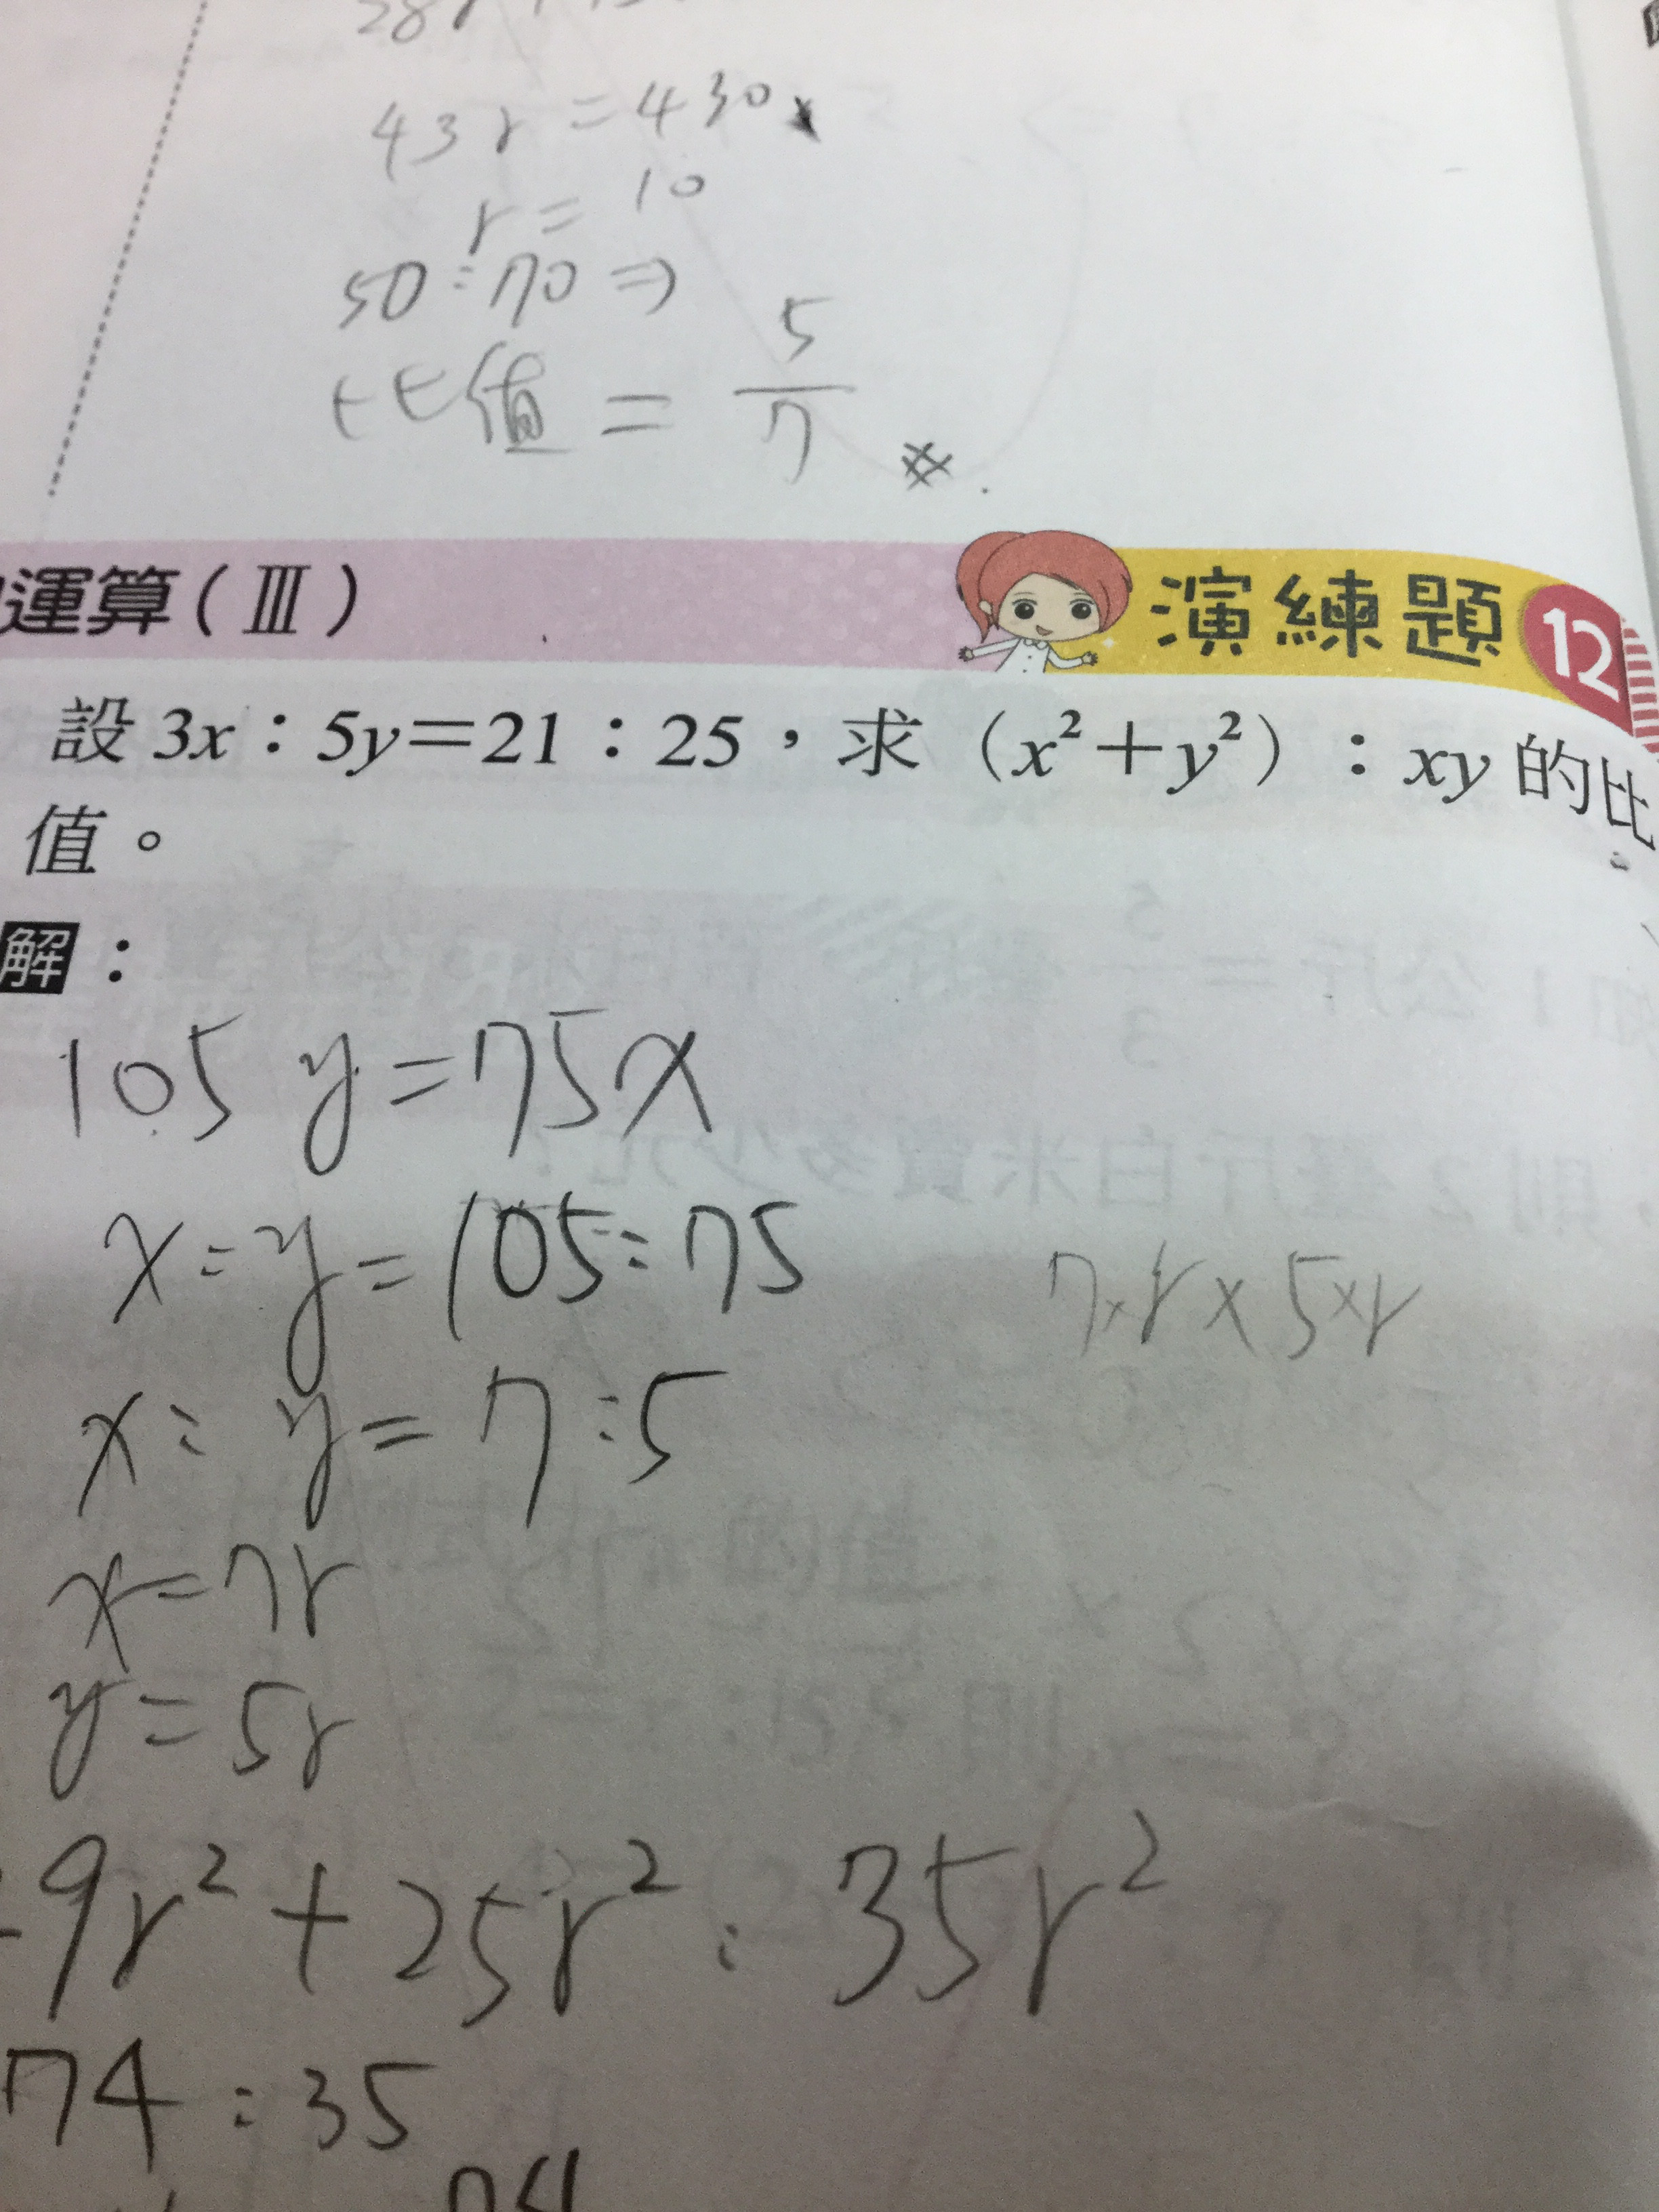 43r=430
r=10
50:70⇒
比值=5/7
運算(Ⅲ)
演練題 12
設3x：5y=21：25，求（x²+y²）：xy的比
值。
解：
105y=75x
x:y=105:75
7×r×5×r
x:y=7:5
x=7r
y=5r
9r²+25r²:35r²
74:35
74